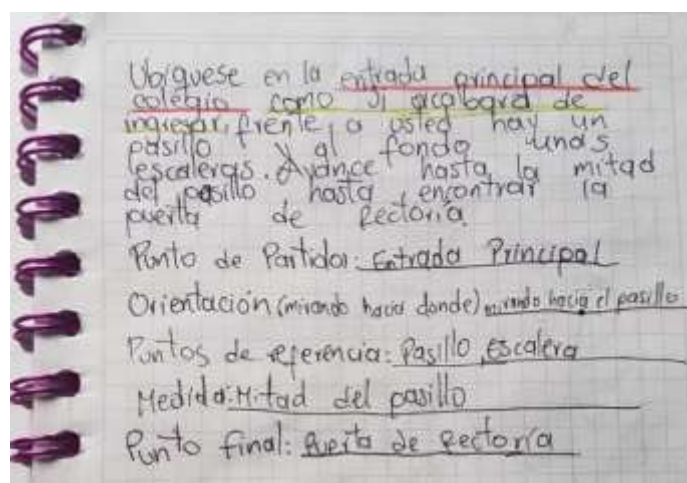 Ubiquese en la entrada principal del
colegio como si acabara de
ingresar, frente a usted hay un
pasillo y al fondo unas
escaleras. Avance hasta la mitad
del pasillo hasta encontrar la
puerta de Rectoria
Punto de Partida: Entrada Principal
Orientación (mirando hacia donde) mirando hacia el pasillo
Puntos de referencia: Pasillo, escalera
Medida: Mitad del pasillo
Punto final: Puerta de Rectoría